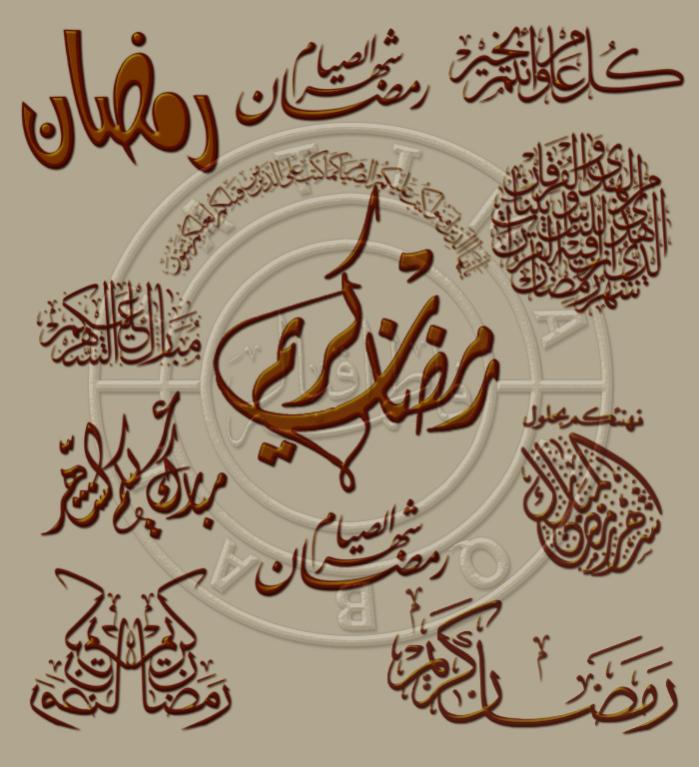 كل عام وأنتم بخير
شهر الصيام
رمضان
رمضان
شهر رمضان الذي أنزل فيه القرآن هدى للناس وبينات من الهدى والفرقان
يا أيها الذين آمنوا كتب عليكم الصيام كما كتب على الذين من قبلكم لعلكم تتقون
رمضان كريم
مبارك عليكم الشهر
نهنئكم بحلول
شهر رمضان المبارك
مبارك عليكم الشهر
شهر الصيام
رمضان
رمضان كريم
رمضان كريم